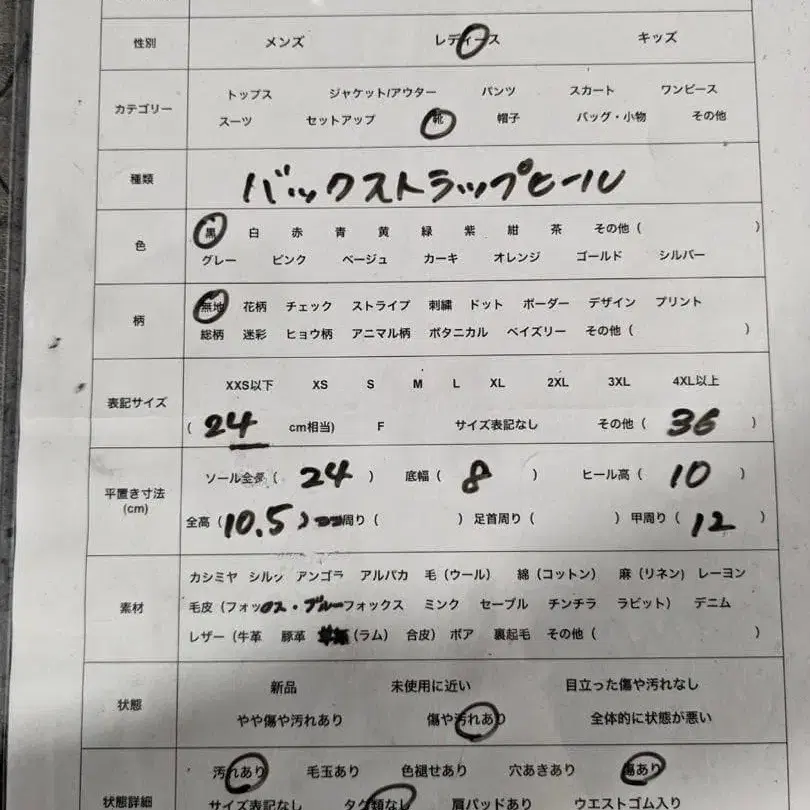 性別 メンズ レディース キッズ
カテゴリー トップス ジャケット/アウター パンツ スカート ワンピース
スーツ セットアップ 靴 帽子 バッグ・小物 その他
種類 バックストラップヒール
色 黒 白 赤 青 黄 緑 紫 紺 茶 その他 ( )
グレー ピンク ベージュ カーキ オレンジ ゴールド シルバー
柄 無地 花柄 チェック ストライプ 刺繍 ドット ボーダー デザイン プリント
総柄 迷彩 ヒョウ柄 アニマル柄 ボタニカル ペイズリー その他 ( )
表記サイズ XXS以下 XS S M L XL 2XL 3XL 4XL以上
( 24 cm相当) F サイズ表記なし その他 ( 36 )
平置き寸法 (cm) ソール全長 ( 24 ) 底幅 ( 8 ) ヒール高 ( 10 )
全高 ( 10.5 ) 周り ( ) 足首周り ( ) 甲周り ( 12 )
素材 カシミヤ シルク アンゴラ アルパカ 毛 (ウール) 綿 (コットン) 麻 (リネン) レーヨン
毛皮 (フォックス・ブルーフォックス ミンク セーブル チンチラ ラビット) デニム
レザー (牛革 豚革 (ラム) 合皮) ボア 裏起毛 その他 ( )
状態 新品 未使用に近い 目立った傷や汚れなし
やや傷や汚れあり 傷や汚れあり 全体的に状態が悪い
状態詳細 汚れあり 毛玉あり 色褪せあり 穴あきあり 傷あり
サイズ表記なし タグ類なし 肩パッドあり ウエストゴム入り